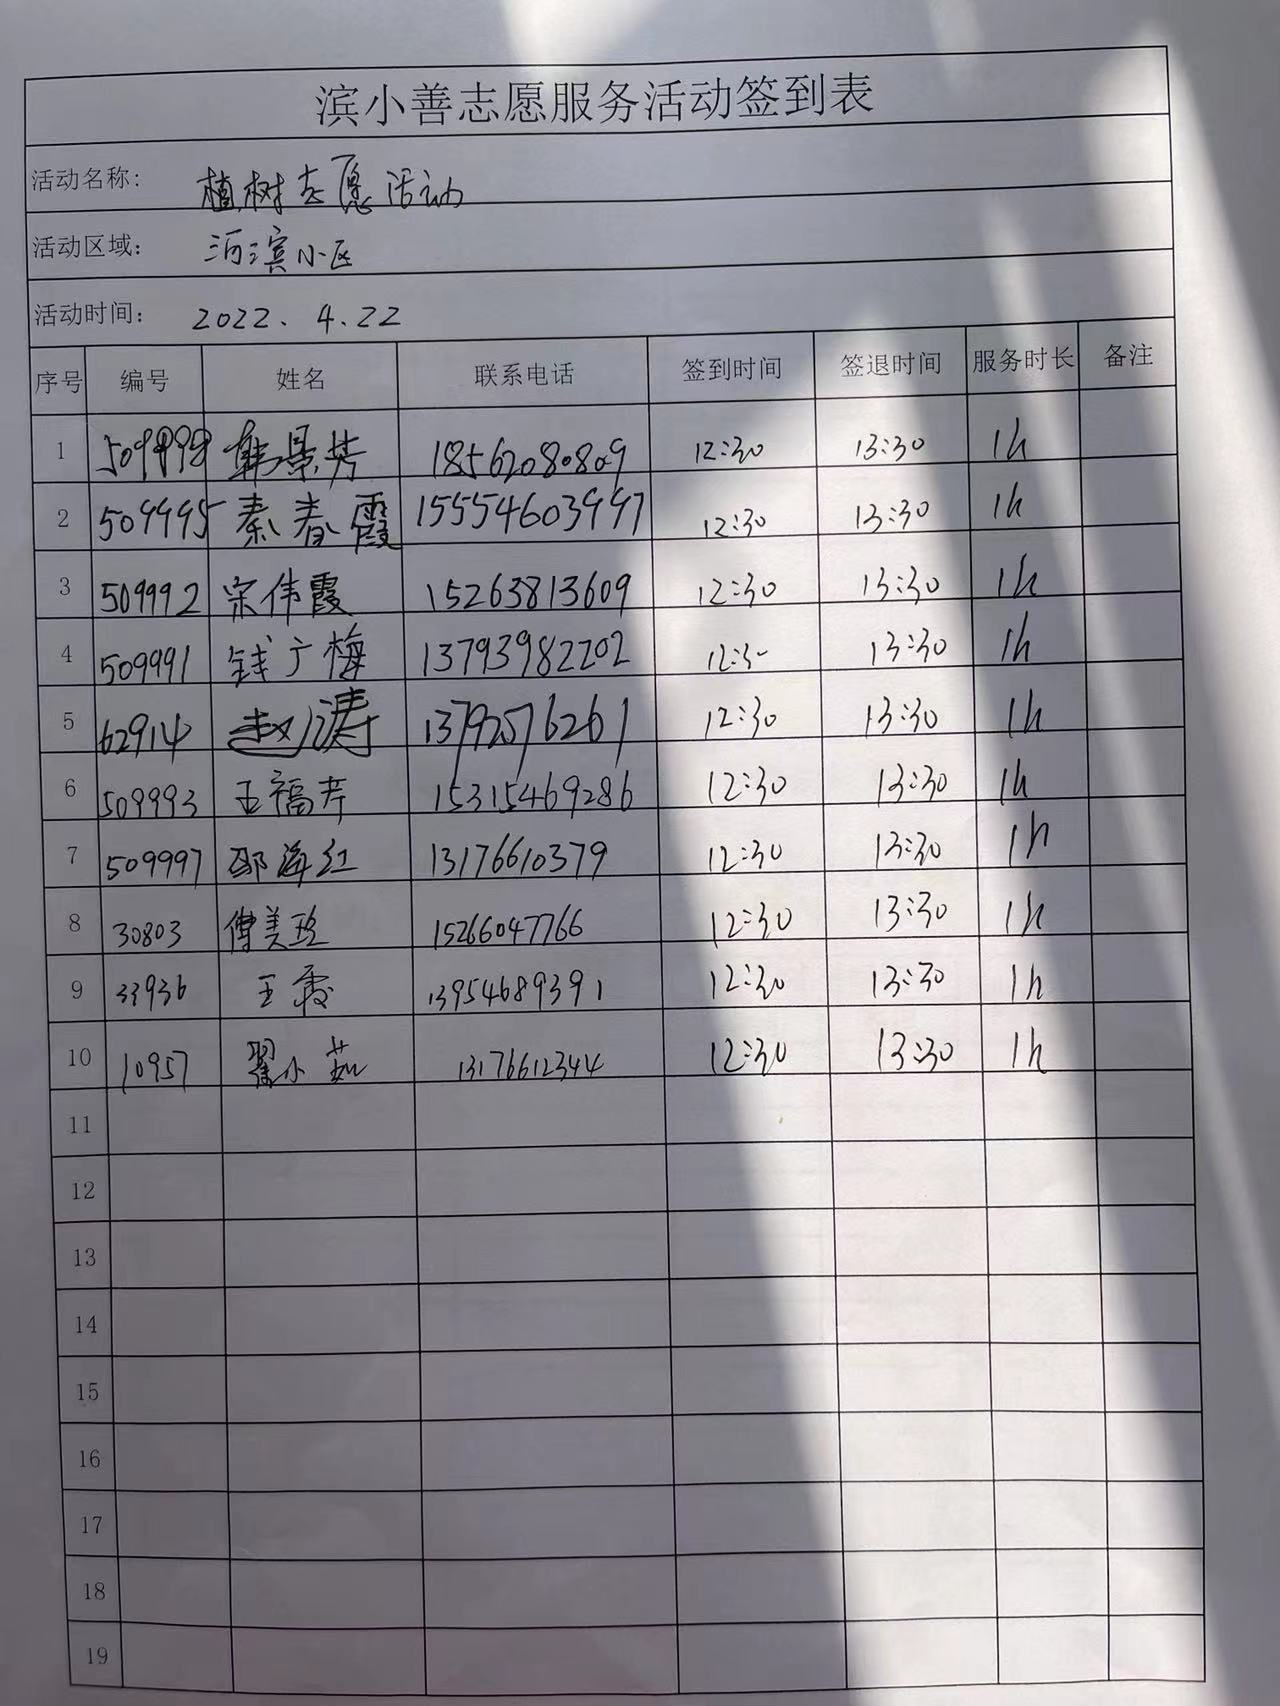 滨小善志愿服务活动签到表
活动名称: 植树志愿活动
活动区域: 河滨小区
活动时间: 2022.4.22
序号 编号 姓名 联系电话 签到时间 签退时间 服务时长 备注
1 韩景芳 18562080809 12:30 13:30 1h
2 509995 秦春霞 15554603997 12:30 13:30 1h
3 509992 宋伟霞 15263813609 12:30 13:30 1h
4 509991 钱广梅 13793982202 12:30 13:30 1h
5 62914 赵涛 13792576261 12:30 13:30 1h
6 509993 王福芹 15315469286 12:30 13:30 1h
7 509997 邵海红 13176610379 12:30 13:30 1h
8 30803 傅美玲 15266047766 12:30 13:30 1h
9 33936 王霞 13954689391 12:30 13:30 1h
10 10957 翟小茹 13176612344 12:30 13:30 1h
11
12
13
14
15
16
17
18
19